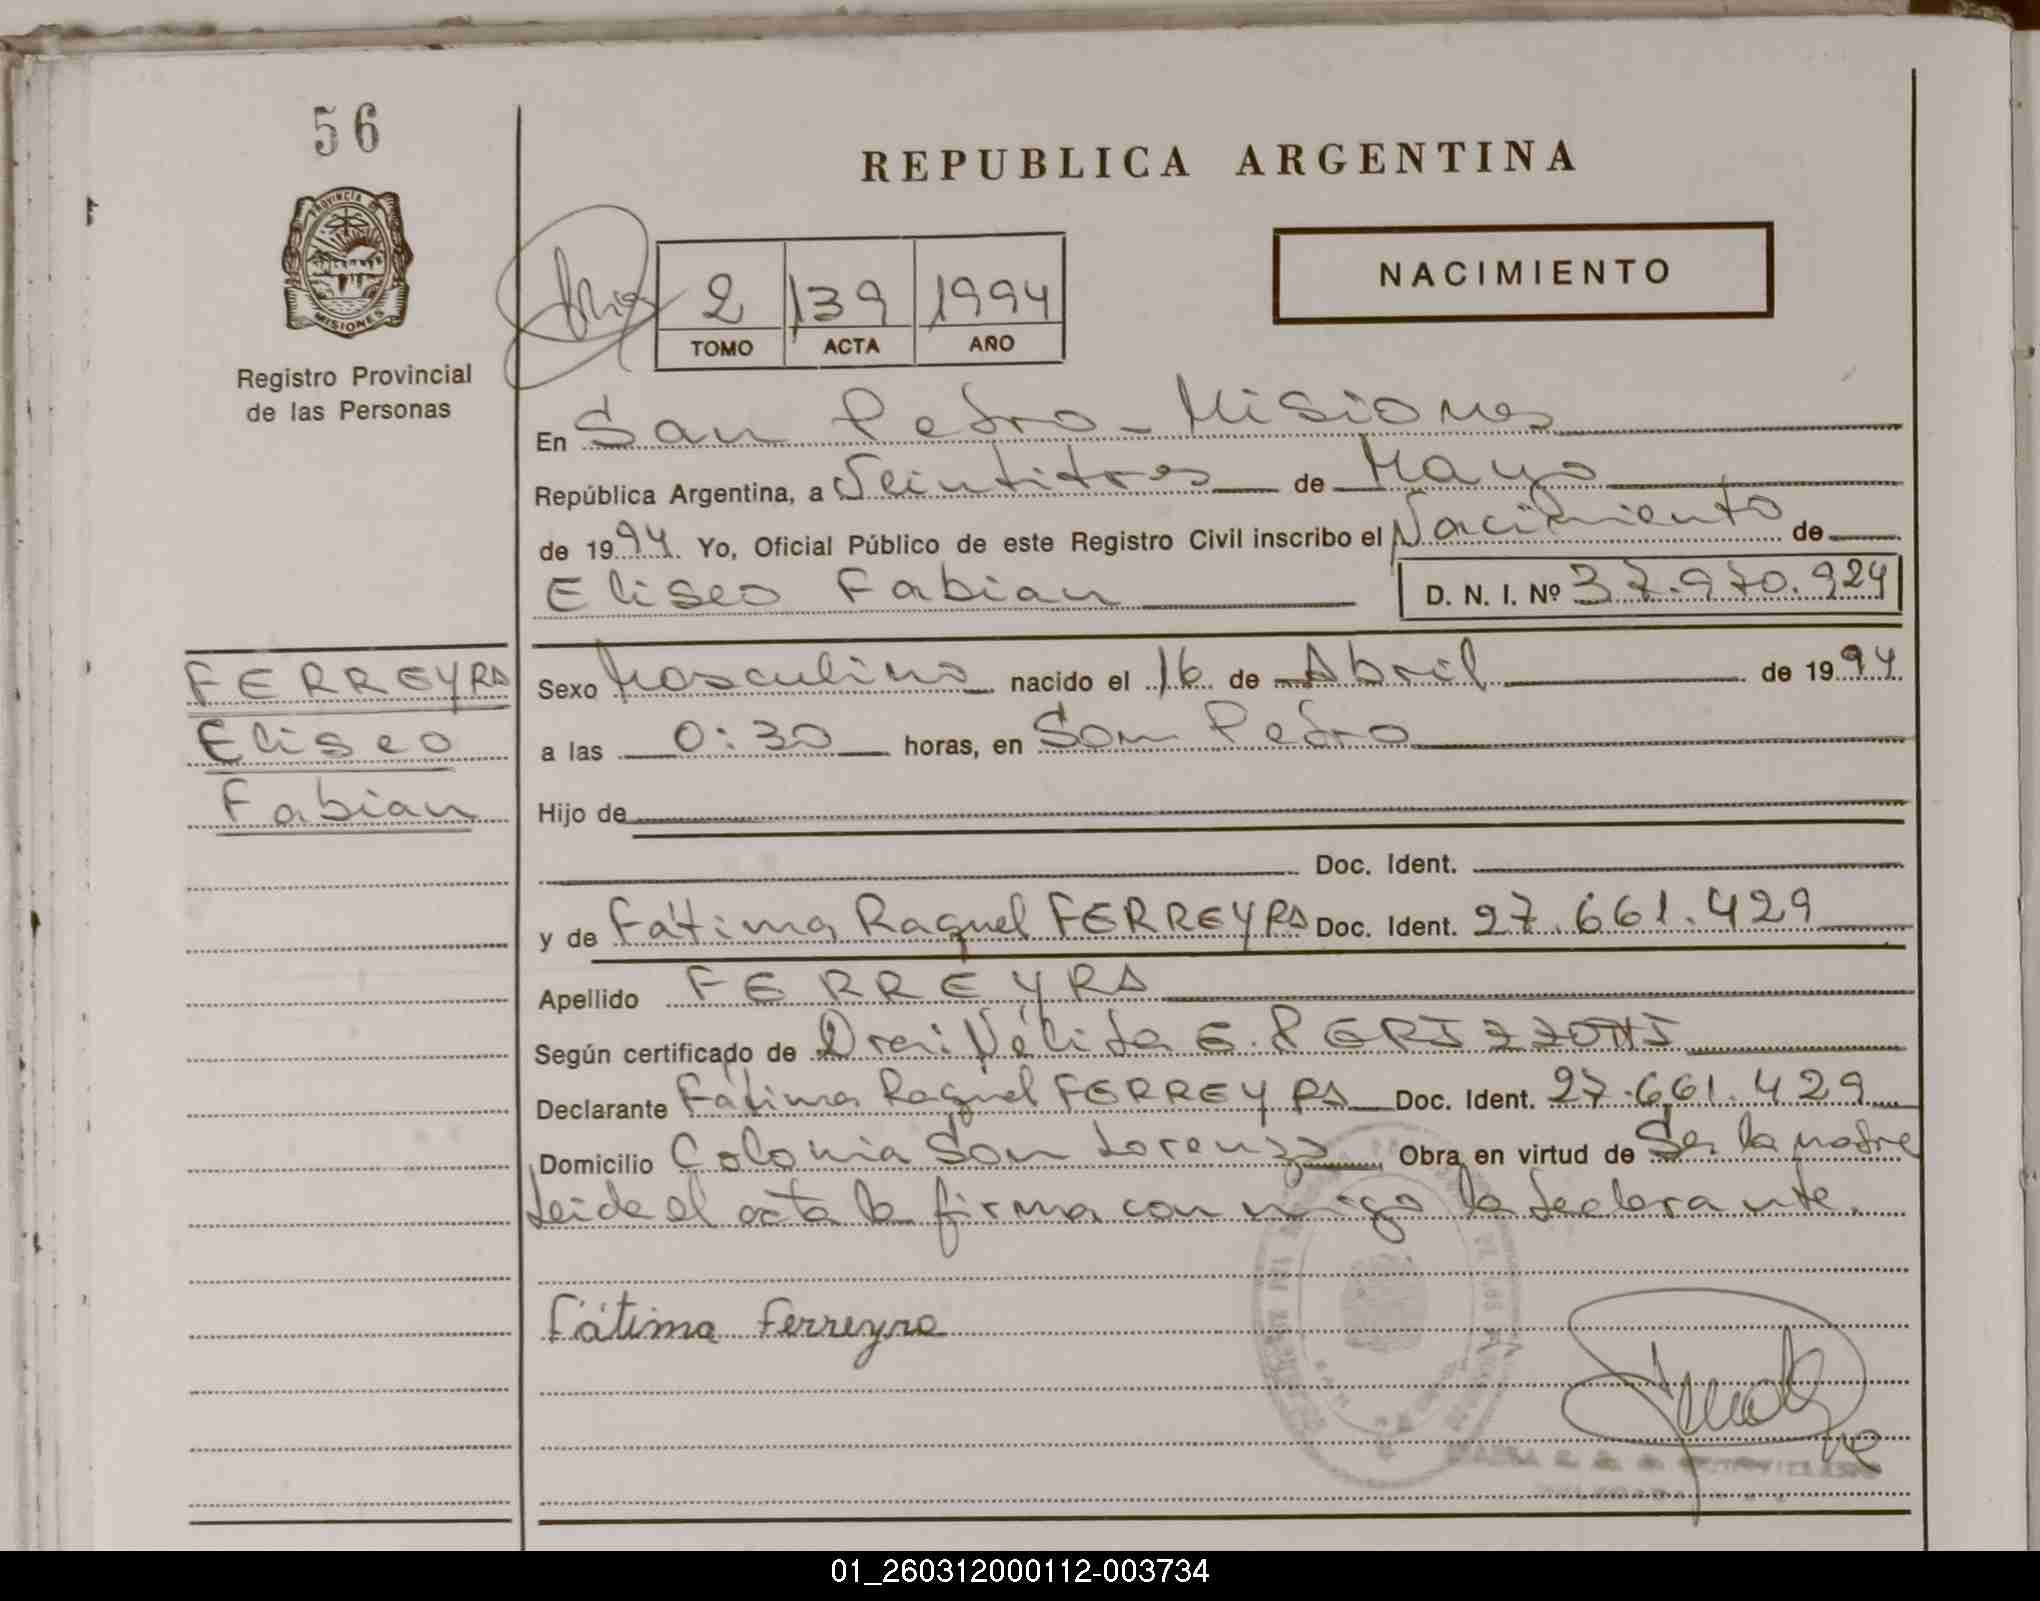 56
REPUBLICA ARGENTINA
PROVINCIA DE
MISIONES
Registro Provincial
de las Personas
NACIMIENTO
2 139 1994
TOMO ACTA AÑO
En San Pedro - Misiones
República Argentina, a Veintitres de Mayo
de 1994 Yo, Oficial Público de este Registro Civil inscribo el Nacimiento de
Eliseo Fabian D. N. I. Nº 37.970.924
FERREYRA
Eliseo
Fabian
Sexo Masculino nacido el 16 de Abril de 1994
a las 0:30 horas, en San Pedro
Hijo de
Doc. Ident.
y de Fátima Raquel FERREYRA Doc. Ident. 27.661.429
Apellido FERREYRA
Según certificado de Dra: Nélida E. PERIZZONI
Declarante Fátima Raquel FERREYRA Doc. Ident. 27.661.429
Domicilio Colonia San Lorenzo Obra en virtud de Ser la madre
Leida el acta la firma conmigo la declarante.
Fátima Ferreyra
01_260312000112-003734